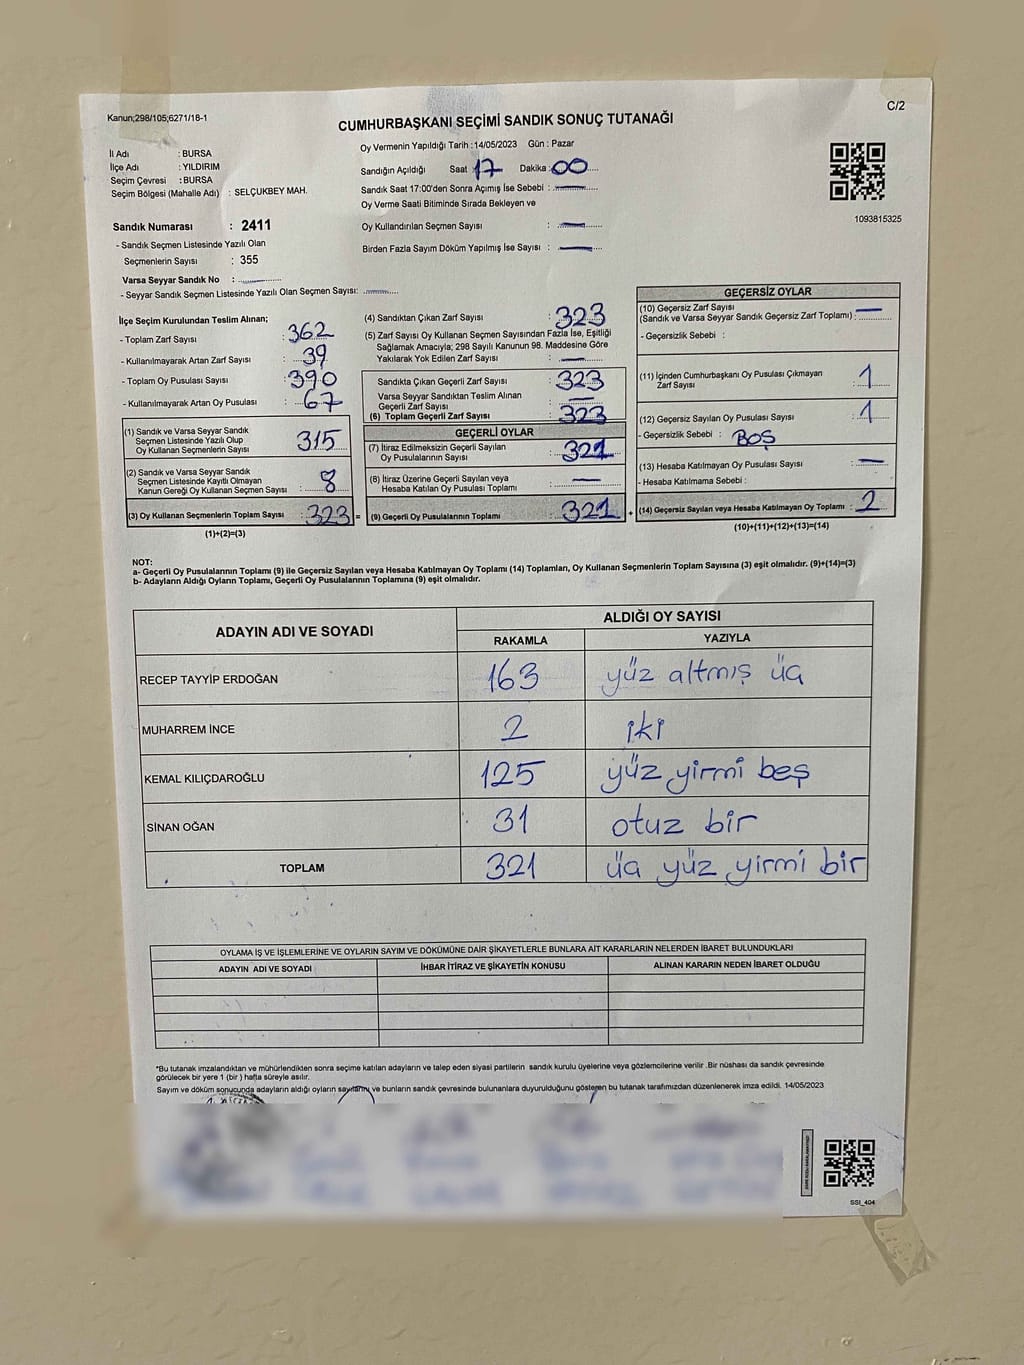 Kanun;298/105;6271/18-1
C/2
CUMHURBAŞKANI SEÇİMİ SANDIK SONUÇ TUTANAĞI
İl Adı : BURSA
İlçe Adı : YILDIRIM
Seçim Çevresi : BURSA
Seçim Bölgesi (Mahalle Adı) : SELÇUKBEY MAH.
Sandık Numarası : 2411
- Sandık Seçmen Listesinde Yazılı Olan
Seçmenlerin Sayısı : 355
Varsa Seyyar Sandık No :
- Seyyar Sandık Seçmen Listesinde Yazılı Olan Seçmen Sayısı:
Oy Vermenin Yapıldığı Tarih :14/05/2023 Gün : Pazar
Sandığın Açıldığı Saat 17 Dakika:00
Sandık Saat 17:00'den Sonra Açımış İse Sebebi : —
Oy Verme Saati Bitiminde Sırada Bekleyen ve
Oy Kullandırılan Seçmen Sayısı : —
Birden Fazla Sayım Döküm Yapılmış İse Sayısı : —
1093815325
İlçe Seçim Kurulundan Teslim Alınan;
- Toplam Zarf Sayısı : 362
- Kullanılmayarak Artan Zarf Sayısı : 39
- Toplam Oy Pusulası Sayısı : 390
- Kullanılmayarak Artan Oy Pusulası : 67
(1) Sandık ve Varsa Seyyar Sandık
Seçmen Listesinde Yazılı Olup
Oy Kullanan Seçmenlerin Sayısı 315
(2) Sandık ve Varsa Seyyar Sandık
Seçmen Listesinde Kayıtlı Olmayan
Kanun Gereği Oy Kullanan Seçmen Sayısı : 8
(3) Oy Kullanan Seçmenlerin Toplam Sayısı : 323 =
(1)+(2)=(3)
(4) Sandıktan Çıkan Zarf Sayısı : 323
(5) Zarf Sayısı Oy Kullanan Seçmen Sayısından Fazla İse, Eşitliği
Sağlamak Amacıyla; 298 Sayılı Kanunun 98. Maddesine Göre
Yakılarak Yok Edilen Zarf Sayısı : —
Sandıkta Çıkan Geçerli Zarf Sayısı : 323
Varsa Seyyar Sandıktan Teslim Alınan
Geçerli Zarf Sayısı : —
(6) Toplam Geçerli Zarf Sayısı : 323
GEÇERLİ OYLAR
(7) İtiraz Edilmeksizin Geçerli Sayılan
Oy Pusulalarının Sayısı : 321
(8) İtiraz Üzerine Geçerli Sayılan veya
Hesaba Katılan Oy Pusulası Toplamı : —
(9) Geçerli Oy Pusulalarının Toplamı : 321 +
GEÇERSİZ OYLAR
(10) Geçersiz Zarf Sayısı
(Sandık ve Varsa Seyyar Sandık Geçersiz Zarf Toplamı) : —
- Geçersizlik Sebebi :
(11) İçinden Cumhurbaşkanı Oy Pusulası Çıkmayan
Zarf Sayısı : 1
(12) Geçersiz Sayılan Oy Pusulası Sayısı : 1
- Geçersizlik Sebebi : BOŞ
(13) Hesaba Katılmayan Oy Pusulası Sayısı : —
- Hesaba Katılmama Sebebi :
(14) Geçersiz Sayılan veya Hesaba Katılmayan Oy Toplamı : 2
(10)+(11)+(12)+(13)=(14)
NOT:
a- Geçerli Oy Pusulalarının Toplamı (9) ile Geçersiz Sayılan veya Hesaba Katılmayan Oy Toplamı (14) Toplamları, Oy Kullanan Seçmenlerin Toplam Sayısına (3) eşit olmalıdır. (9)+(14)=(3)
b- Adayların Aldığı Oyların Toplamı, Geçerli Oy Pusulalarının Toplamına (9) eşit olmalıdır.
ADAYIN ADI VE SOYADI ALDIĞI OY SAYISI
RAKAMLA YAZIYLA
RECEP TAYYİP ERDOĞAN 163 yüz altmış üç
MUHARREM İNCE 2 iki
KEMAL KILIÇDAROĞLU 125 yüz yirmi beş
SİNAN OĞAN 31 otuz bir
TOPLAM 321 üç yüz yirmi bir
OYLAMA İŞ VE İŞLEMLERİNE VE OYLARIN SAYIM VE DÖKÜMÜNE DAİR ŞİKAYETLERLE BUNLARA AİT KARARLARIN NELERDEN İBARET BULUNDUKLARI
ADAYIN ADI VE SOYADI İHBAR İTİRAZ VE ŞİKAYETİN KONUSU ALINAN KARARIN NEDEN İBARET OLDUĞU
*Bu tutanak imzalandıktan ve mühürlendikten sonra seçime katılan adayların ve talep eden siyasi partilerin sandık kurulu üyelerine veya gözlemcilerine verilir .Bir nüshası da sandık çevresinde
görülecek bir yere 1 (bir ) hafta süreyle asılır.
Sayım ve döküm sonucunda adayların aldığı oyların sayılarını ve bunların sandık çevresinde bulunanlara duyurulduğunu gösteren bu tutanak tarafımızdan düzenlenerek imza edildi. 14/05/2023
SSI_404